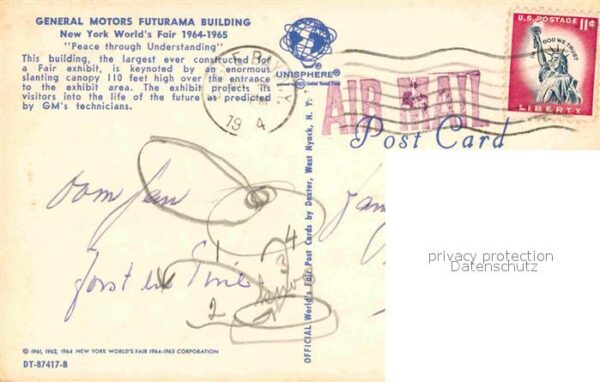 GENERAL MOTORS FUTURAMA BUILDING
New York World's Fair 1964-1965
"Peace through Understanding"
This building, the largest ever constructed for
a Fair exhibit, is keynoted by an enormous
slanting canopy 110 feet high over the entrance
to the exhibit area. The exhibit projects its
visitors into the life of the future as predicted
by GM's technicians.
UNISPHERE®
19
AIR MAIL
U.S. POSTAGE 11¢
IN GOD WE TRUST
LIBERTY
Post Card
OFFICIAL World's Fair Post Cards by Dexter, West Nyack, N. Y.
1
4
3
2
privacy protection
Datenschutz
© 1961, 1962, 1964 NEW YORK WORLD'S FAIR 1964-1965 CORPORATION
DT-87417-B